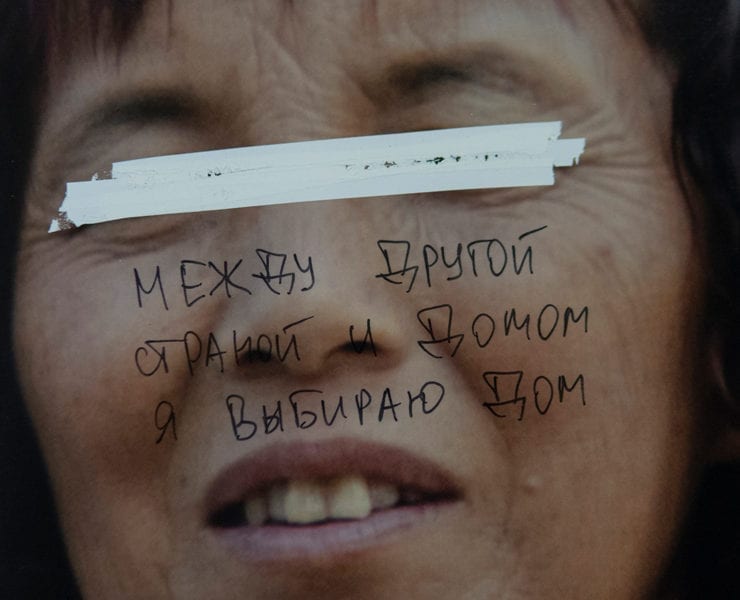 МЕЖДУ ДРУГОЙ
СТРАНОЙ И ДОМОМ
Я ВЫБИРАЮ ДОМ